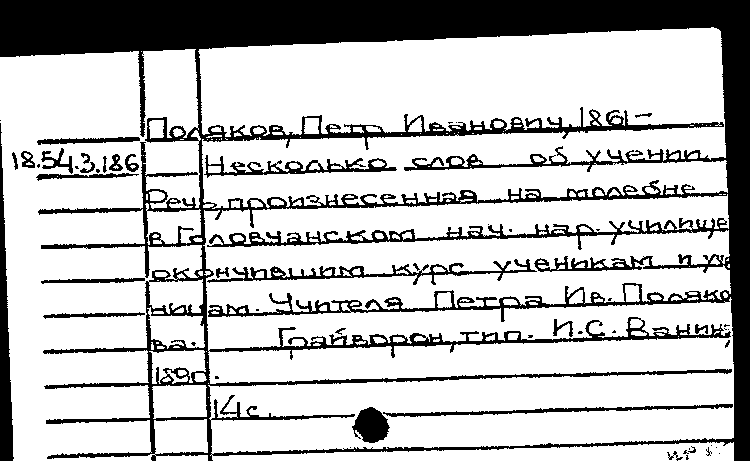 Поляков, Петр Иванович, 1861-
18.54.3.186 Несколько слов об учении.
Речь, произнесенная на молебне
в Головчанском нач. нар. училище
окончившим курс ученикам и уче
ницам. Учителя Петра Ив. Поляко
ва. Грайворон, тип. И.С. Ванин,
14 с.